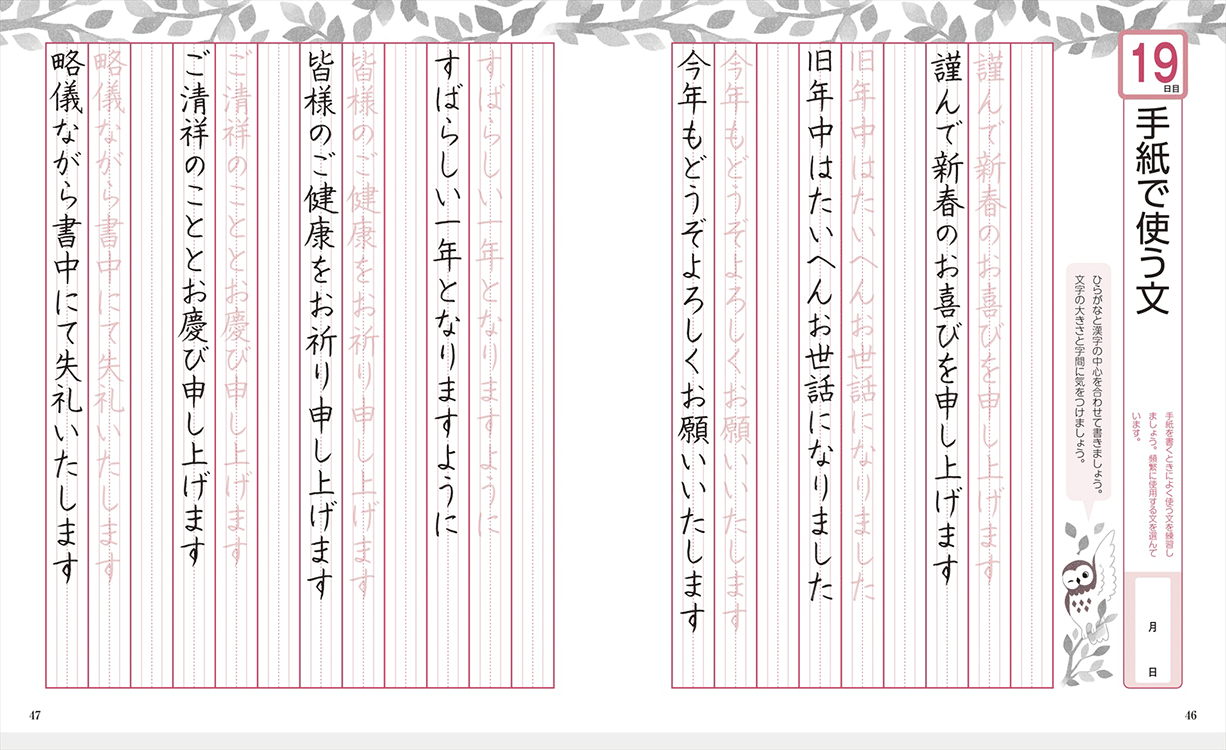 19日目
手紙で使う文
手紙を書くときによく使う文を練習し
ましょう。頻繁に使用する文を選んで
います。
月
日
ひらがなと漢字の中心を合わせて書きましょう。
文字の大きさと字間に気をつけましょう。
謹んで新春のお喜びを申し上げます
謹んで新春のお喜びを申し上げます
旧年中はたいへんお世話になりました
旧年中はたいへんお世話になりました
今年もどうぞよろしくお願いいたします
今年もどうぞよろしくお願いいたします
46
すばらしい一年となりますように
すばらしい一年となりますように
皆様のご健康をお祈り申し上げます
皆様のご健康をお祈り申し上げます
ご清祥のこととお慶び申し上げます
ご清祥のこととお慶び申し上げます
略儀ながら書中にて失礼いたします
略儀ながら書中にて失礼いたします
47